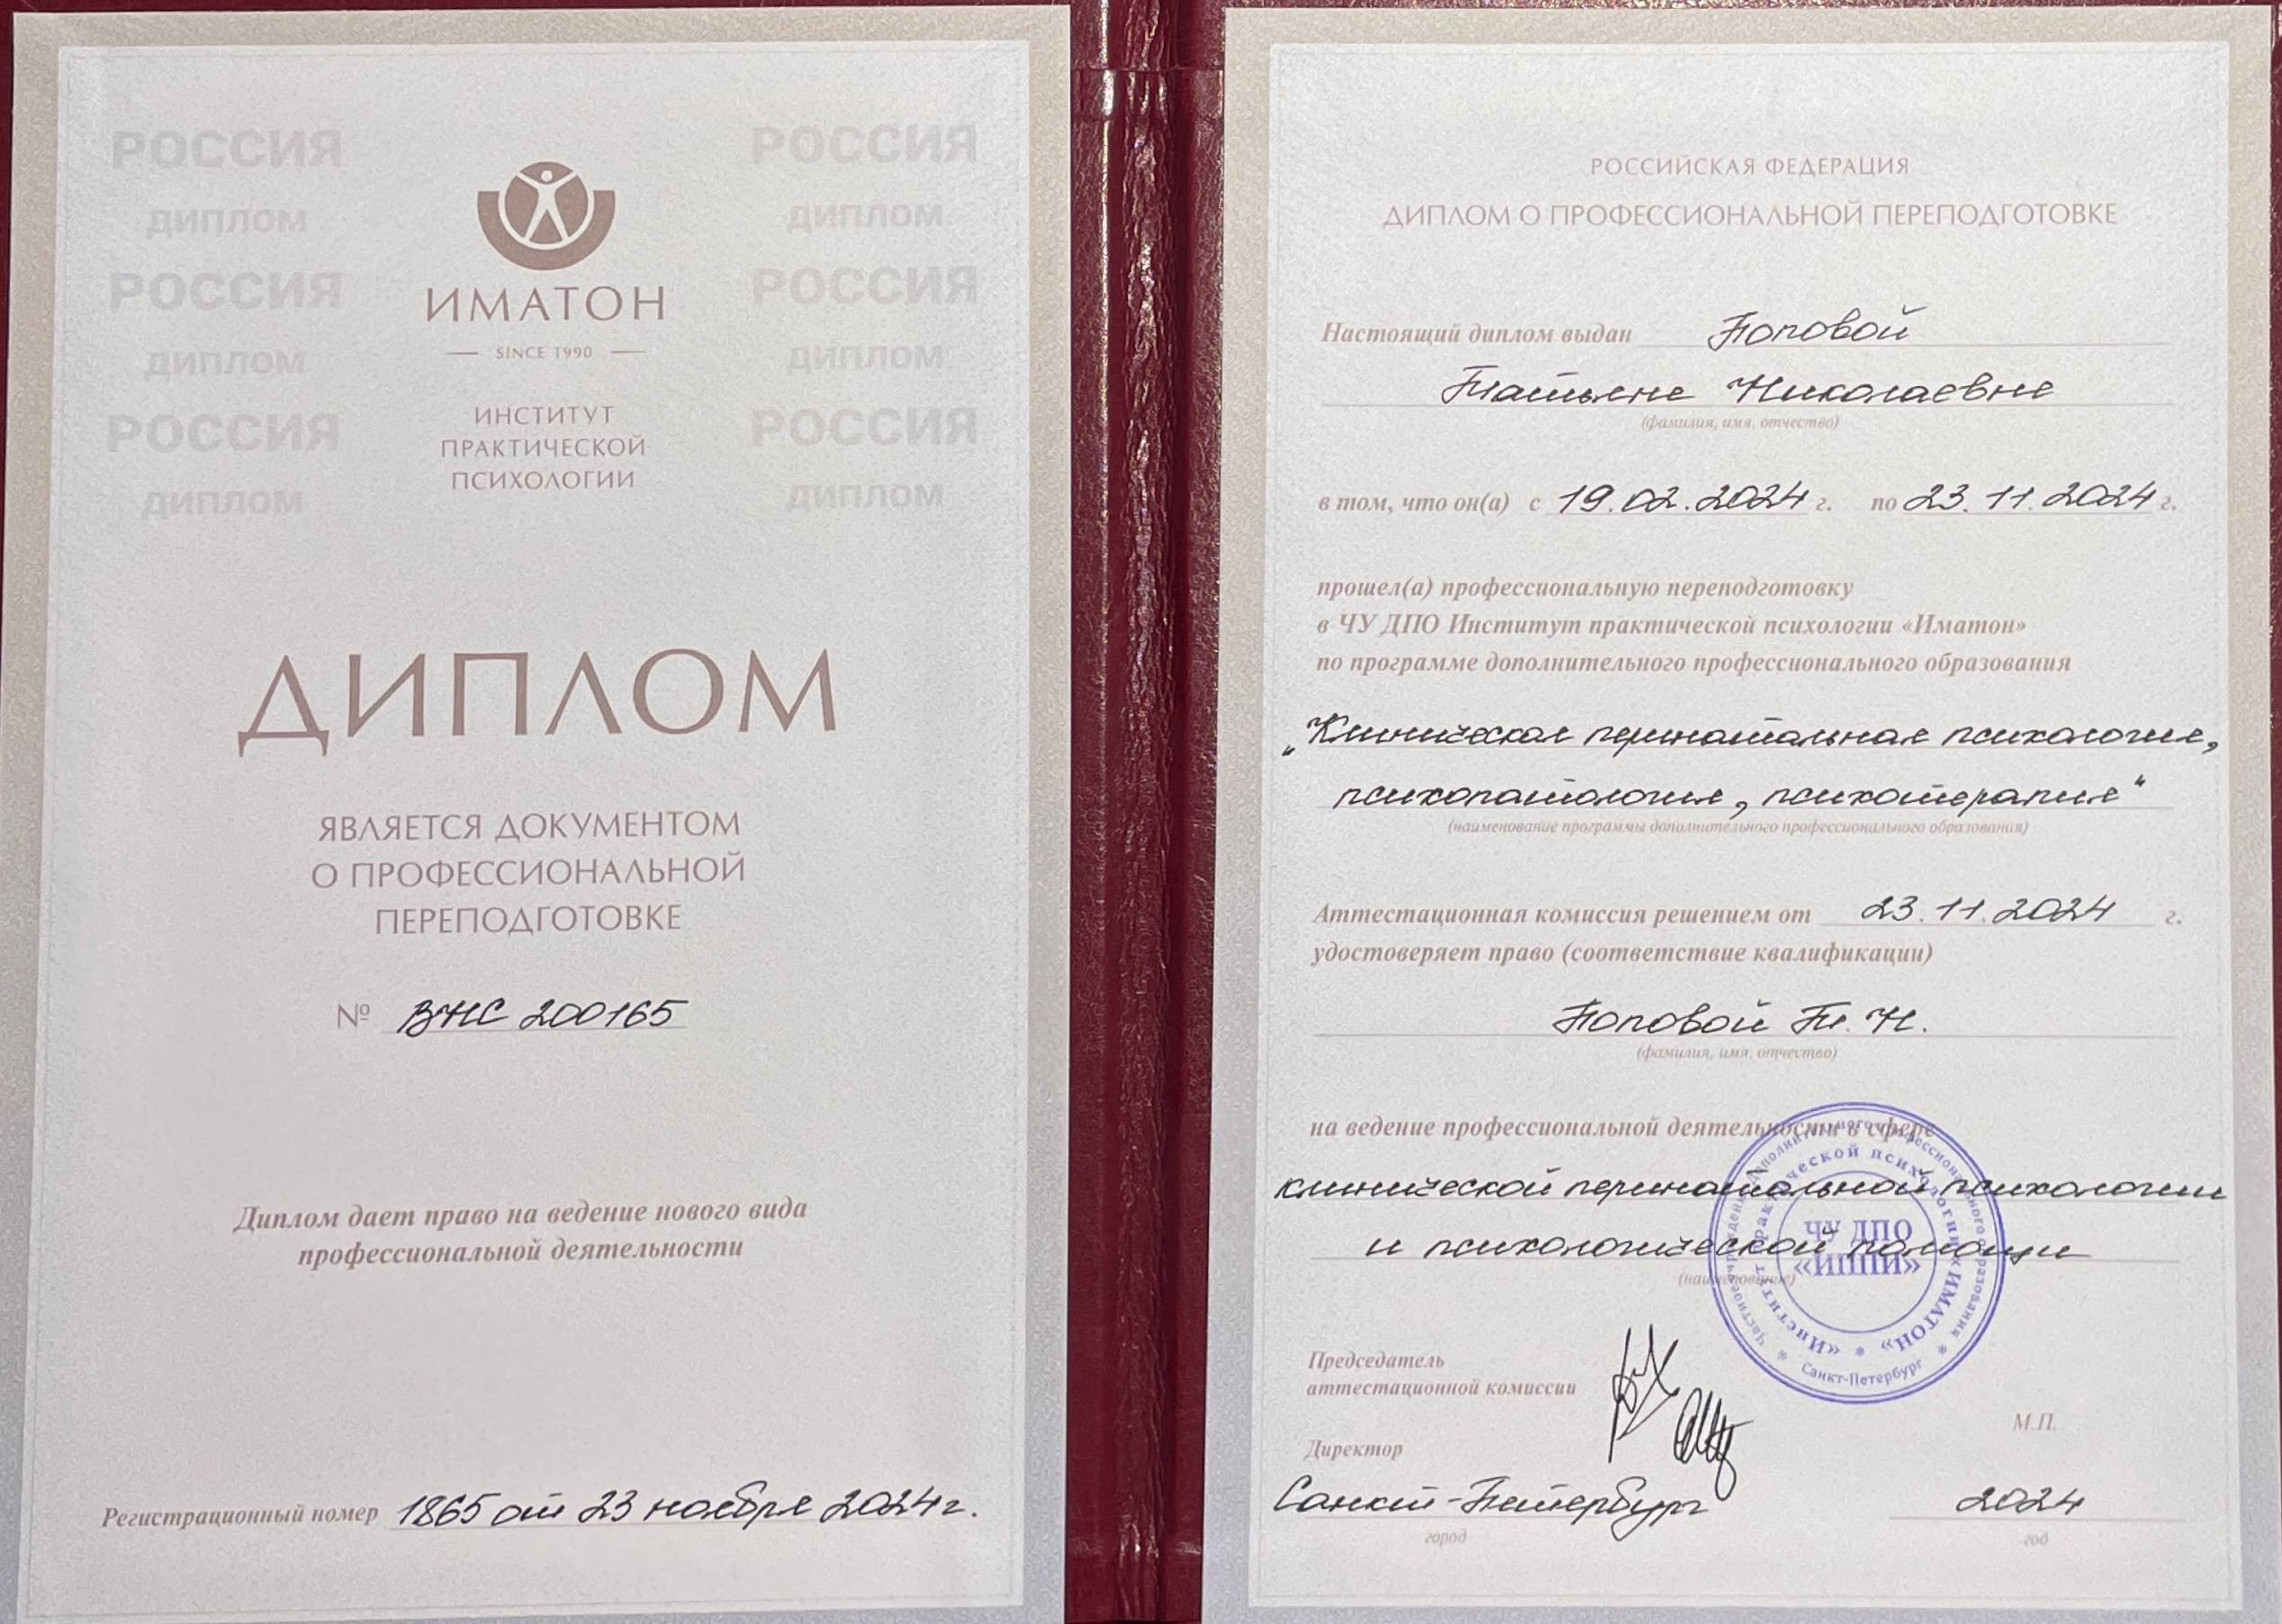 РОССИЯ
ДИПЛОМ
РОССИЯ
ДИПЛОМ
РОССИЯ
ДИПЛОМ
РОССИЯ
ДИПЛОМ
РОССИЯ
ДИПЛОМ
РОССИЯ
ДИПЛОМ
ИМАТОН
SINCE 1990
ИНСТИТУТ
ПРАКТИЧЕСКОЙ
ПСИХОЛОГИИ
ДИПЛОМ
ЯВЛЯЕТСЯ ДОКУМЕНТОМ
О ПРОФЕССИОНАЛЬНОЙ
ПЕРЕПОДГОТОВКЕ
№ ВНС 200165
Диплом дает право на ведение нового вида
профессиональной деятельности
Регистрационный номер 1865 от 23 ноября 2024 г.
РОССИЙСКАЯ ФЕДЕРАЦИЯ
ДИПЛОМ О ПРОФЕССИОНАЛЬНОЙ ПЕРЕПОДГОТОВКЕ
Настоящий диплом выдан Поповой
Татьяне Николаевне
(фамилия, имя, отчество)
в том, что он(а) с 19.02.2024 г. по 23.11.2024 г.
прошел(а) профессиональную переподготовку
в ЧУ ДПО Институт практической психологии «Иматон»
по программе дополнительного профессионального образования
„Клиническая перинатальная психология,
психопатология, психотерапия“
(наименование программы дополнительного профессионального образования)
Аттестационная комиссия решением от 23.11.2024 г.
удостоверяет право (соответствие квалификации)
Поповой Т. Н.
(фамилия, имя, отчество)
на ведение профессиональной деятельности в сфере
клинической перинатальной психологии
и психологической помощи
(наименование)
Частное учреждение дополнительного профессионального образования
* Санкт-Петербург *
«Институт практической психологии «ИМАТОН» *
ЧУ ДПО
«ИППИ»
Председатель
аттестационной комиссии
М.П.
Директор
Санкт-Петербург 2024
город год